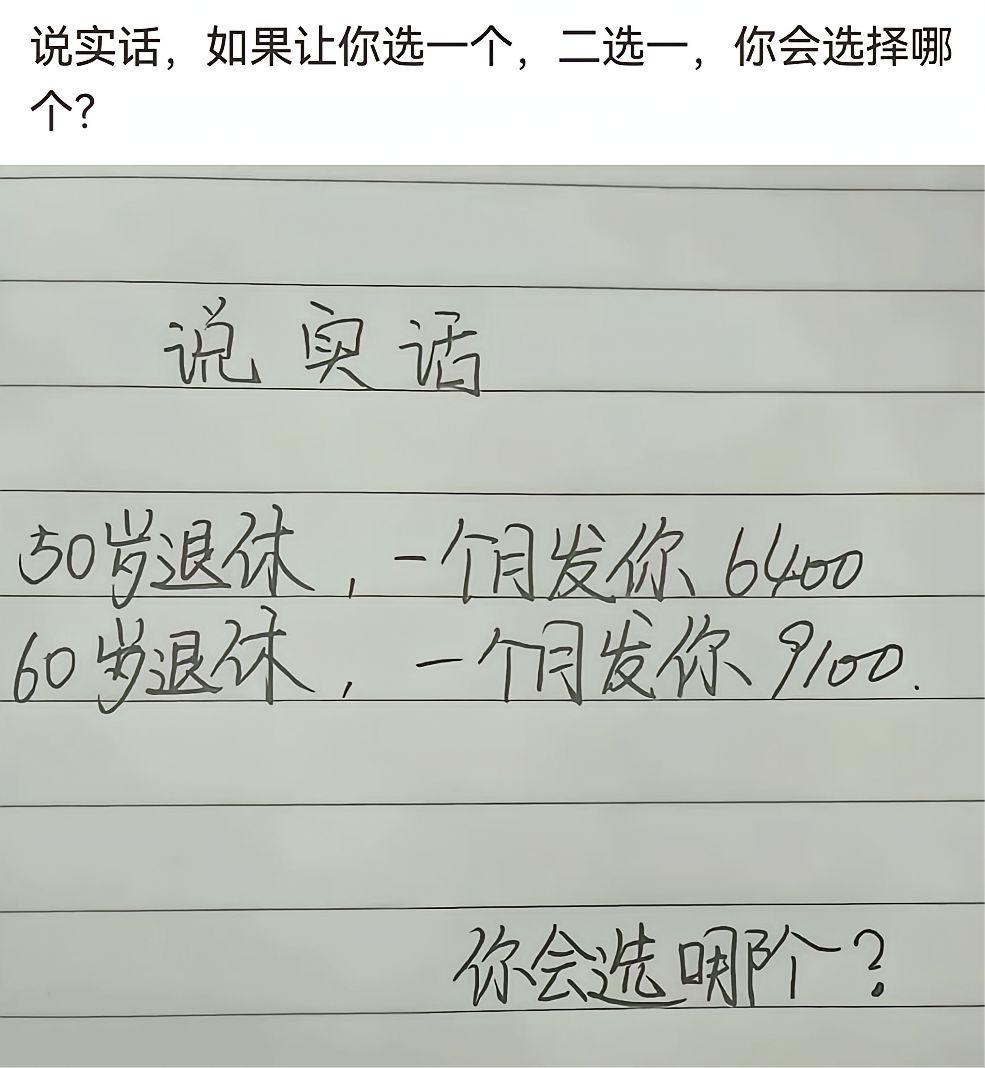 说实话，如果让你选一个，二选一，你会选择哪
个？
说实话
50岁退休，一个月发你6400
60岁退休，一个月发你9100.
你会选哪个？